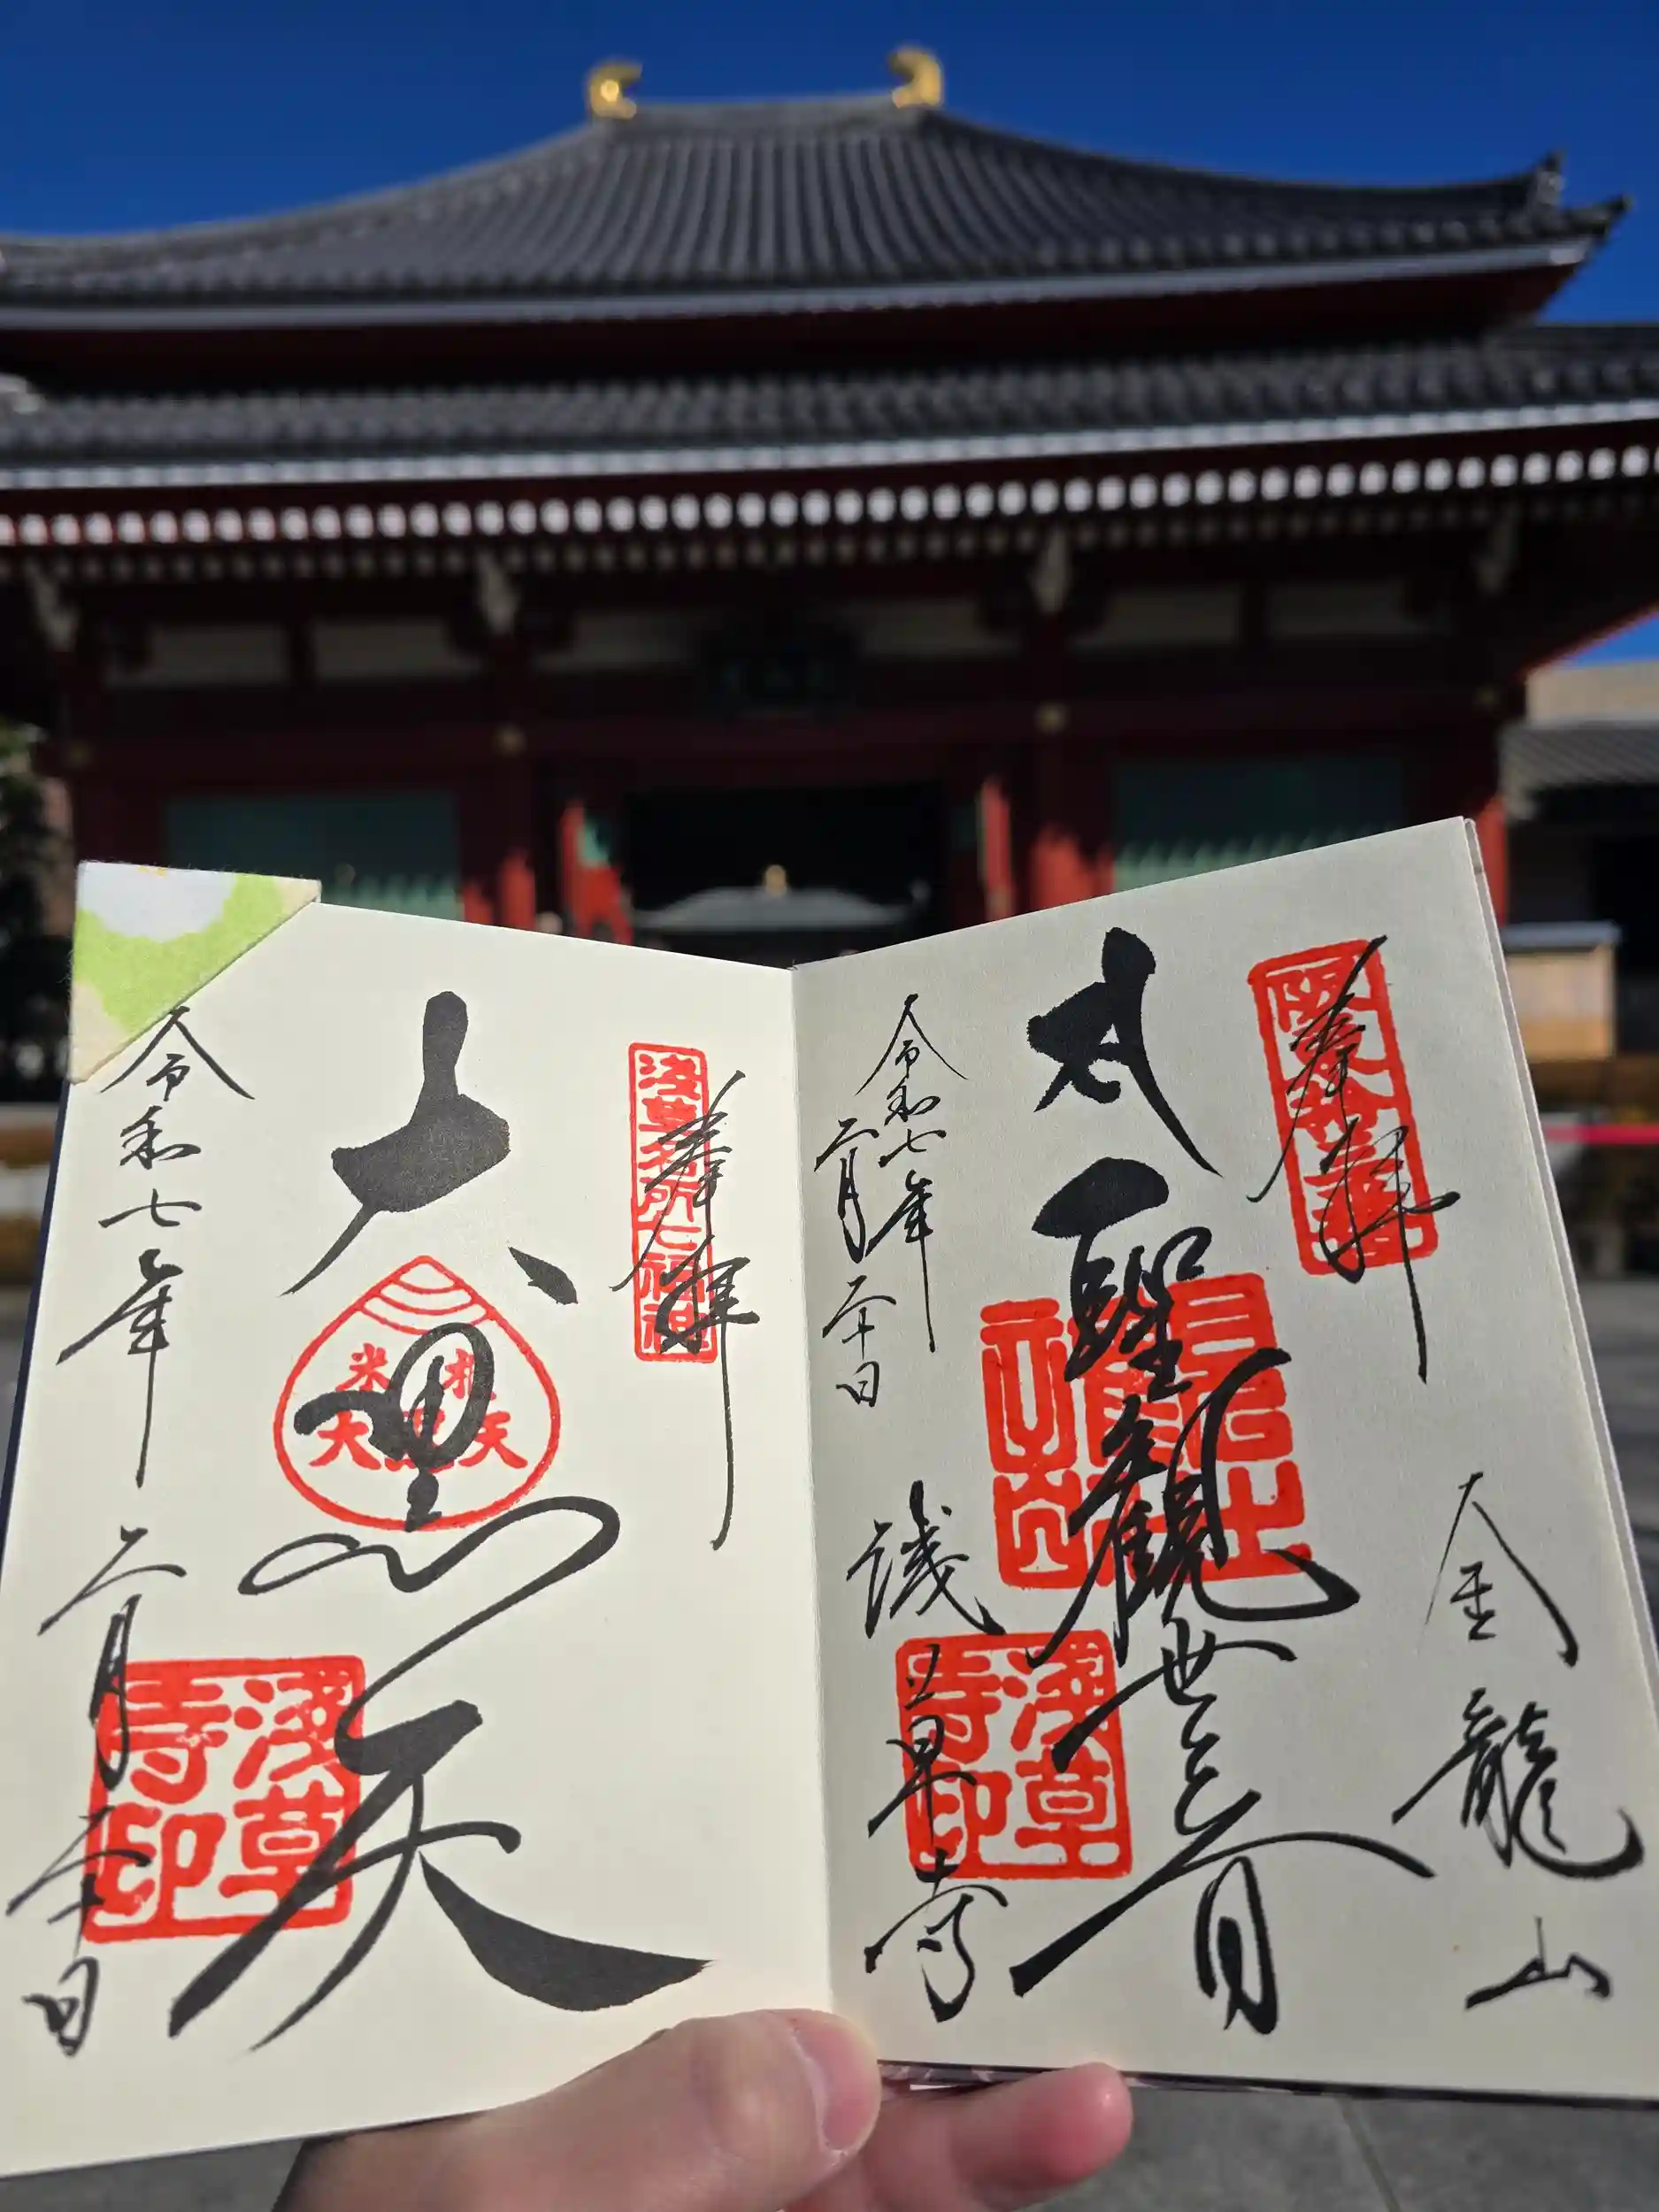 金龍山
奉拝
大聖観世音
令和七年
二月二十日
浅草寺
浅草
寺印
奉拝
浅草名所七福神
大黒天
米札
大黒天
令和七年二月二十日
浅草
寺印